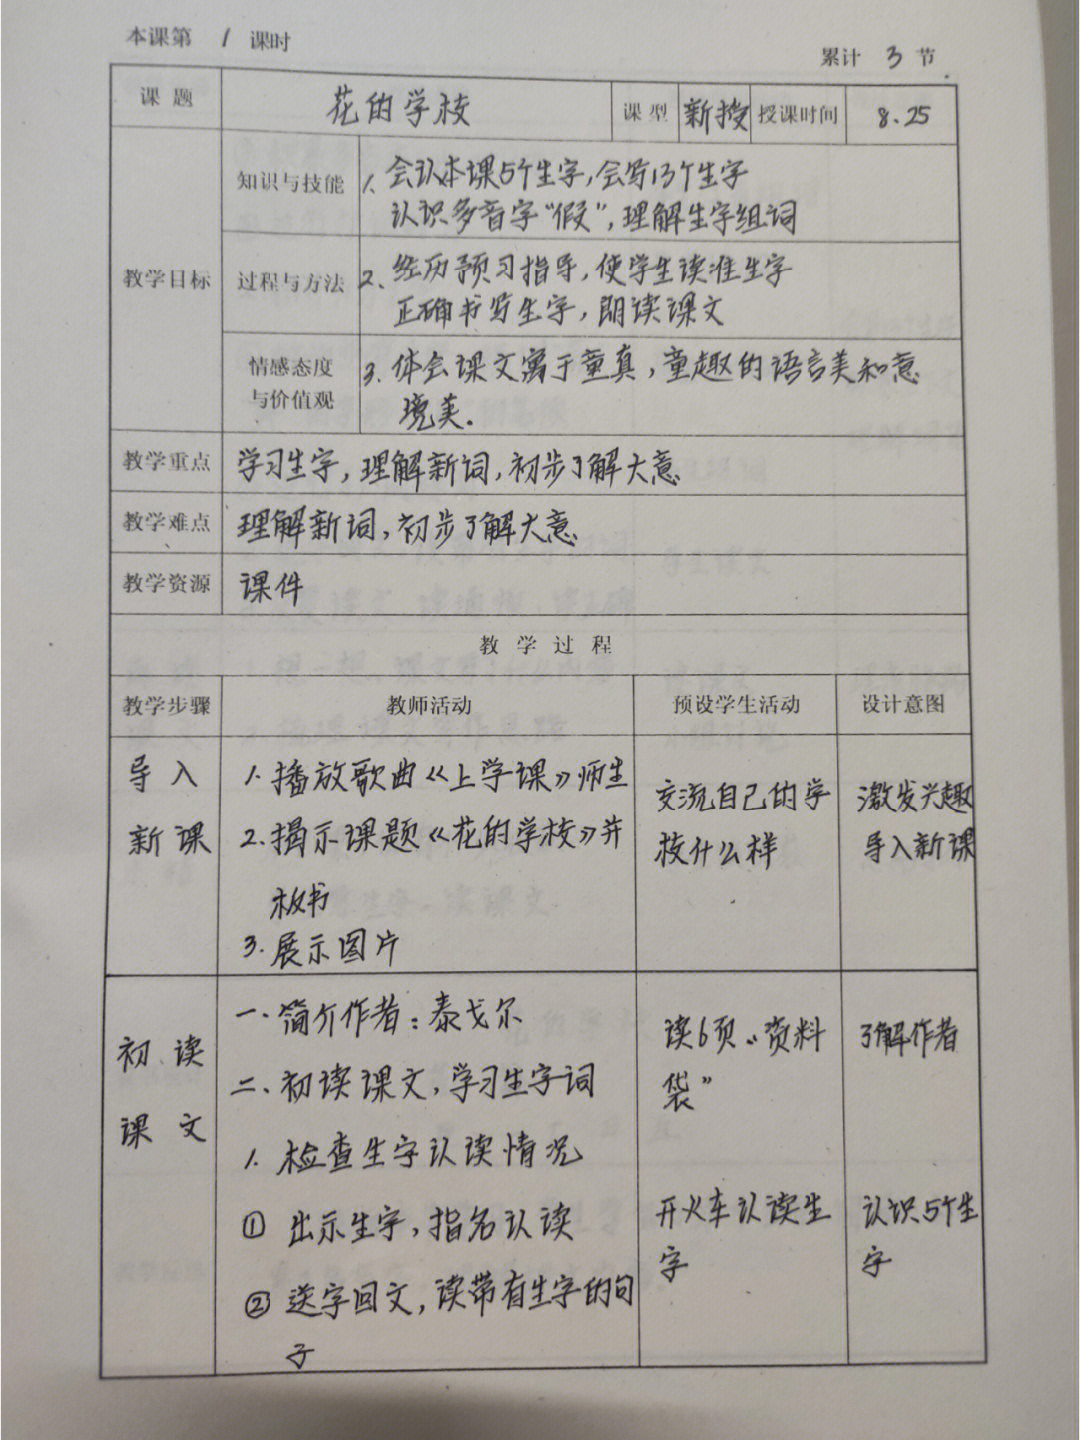 本课第 1 课时
累计 3 节
课题 花的学校 课型 新授 授课时间 8.25
教学目标
知识与技能
1. 会认本课5个生字,会写13个生字
认识多音字“假”,理解生字组词
过程与方法
2. 经历预习指导,使学生读准生字
正确书写生字,朗读课文
情感态度
与价值观
3. 体会课文寓于童真,童趣的语言美和意
境美.
教学重点 学习生字,理解新词,初步了解大意
教学难点 理解新词,初步了解大意
教学资源 课件
教学过程
教学步骤 教师活动 预设学生活动 设计意图
导入
新课
1. 播放歌曲《上学课》师生
2. 揭示课题《花的学校》并
板书
3. 展示图片
交流自己的学
校什么样
激发兴趣
导入新课
初读
课文
一. 简介作者:泰戈尔
二. 初读课文,学习生字词
1. 检查生字认读情况
① 出示生字,指名认读
② 送字回文,读带有生字的句
子
读6页“资料
袋”
开火车认读生
字
了解作者
认识5个生
字